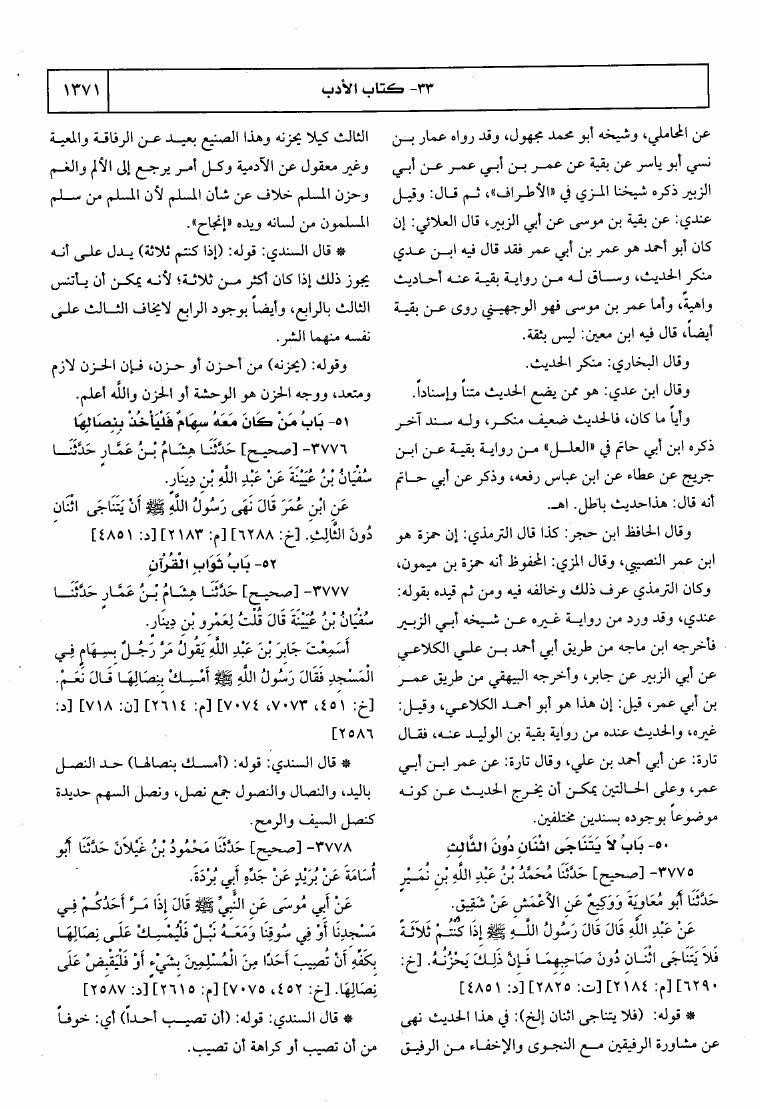 ٣٣- كتاب الأدب
١٣٧١
عن المحاملي، وشيخه أبو محمد مجهول، وقد رواه عمار بـن
نسي أبو ياسر عن بقية عن عمـر بـن أبـي عمـر عـن أبـي
الزبير ذكره شيخنا المـزي في «الأطـراف»، ثـم قـال: وقيـل
عندي: عن بقية بن موسى عن أبي الزبير، قال العلائي: إن
كان أبو أحمد هو عمر بن أبي عمر فقد قال فيه ابـن عـدي
منكر الحديث، وسـاق لـه مـن روايـة بقيـة عنـه أحـاديث
واهية، وأما عمر بن موسى فهو الوجهيني روى عـن بقيـة
أيضاً، قال فيه ابن معين: ليس بثقة.
وقال البخاري: منكر الحديث.
وقال ابن عدي: هو ممن يضع الحديث متناً وإسناداً.
وأياً ما كان، فالحديث ضعيف منكـر، ولـه سـند آخـر
ذكره ابن أبي حاتم في «العلـل» مـن روايـة بقيـة عـن ابـن
جريج عن عطاء عن ابن عباس رفعه، وذكر عن أبي حـاتم
أنه قال: هذا حديث باطل. اهـ.
وقال الحافظ ابن حجر: كذا قال الترمذي: إن حمزة هو
ابن عمر النصيبي، وقال المزي: المحفوظ أنه حمزة بن ميمون،
وكان الترمذي عرف ذلك وخالفه فيه ومن ثم قيده بقوله:
عندي، وقد ورد من روايـة غـيره عـن شـيخه أبـي الزبـير
فأخرجه ابن ماجه من طريق أبي أحمد بـن علـي الكلاعـي
عن أبي الزبير عن جابر، وأخرجه البيهقي من طريق عمـر
بن أبي عمر، قيل: إن هذا هو أبو أحمـد الكلاعـي، وقيـل:
غيره، والحديث عنده من رواية بقية بن الوليـد عنـه، فقـال
تارة: عن أبي أحمد بن علي، وقال تارة: عن عمر ابـن أبـي
عمر، وعلى الحـالتين يمكـن أن يخـرج الحديـث عـن كونـه
موضوعاً بوجوده بسندين مختلفين.
٥٠- بَابُ لاَ يَتَنَاجَى اثْنَانِ دُونَ الثَّالِثِ
٣٧٧٥- [صحيح] حَدَّثَنَا مُحَمَّدُ بْنُ عَبْدِ اللَّهِ بْنِ نُمَـيْرٍ
حَدَّثَنَا أَبُو مُعَاوِيَةَ وَوَكِيعٌ عَنِ الأَعْمَشِ عَنْ شَقِيقٍ.
عَنْ عَبْدِ اللَّهِ قَالَ قَالَ رَسُولُ اللَّـهِ ﷺ إِذَا كُنْتُـمْ ثَلاَثَـةً
فَلاَ يَتَنَاجَى اثْنَـانِ دُونَ صَاحِبِهِمَـا فَـإِنَّ ذَلِـكَ يَحْزُنُـهُ. [خ:
٦٢٩٠] [م: ٢١٨٤] [ت: ٢٨٢٥] [د: ٤٨٥١]
* قوله: (فلا يتناجى اثنان إلخ): في هذا الحديث نهى
عن مشاورة الرفيقين مـع النجـوى والإخفـاء مـن الرفيـق
الثالث كيلا يحزنه وهذا الصنيع بعيـد عـن الرفاقـة والمعيـة
وغير معقول عن الآدمية وكـل أمـر يرجـع إلى الألم والغـم
وحزن المسلم خلاف عن شأن المسلم لأن المسلم من سـلم
المسلمون من لسانه ويده «إنجاح».
* قال السندي: قوله: (إذا كنتم ثلاثة) يـدل علـى أنـه
يجوز ذلك إذا كان أكثر مـن ثلاثـة؛ لأنـه يمكـن أن يـأتنس
الثالث بالرابع، وأيضاً بوجود الرابع لايخاف الثـالث علـى
نفسه منهما الشر.
وقوله: (يحزنه) من أحـزن أو حـزن، فـإن الحـزن لازم
ومتعد، ووجه الحزن هو الوحشة أو الحزن والله أعلم.
٥١- بَابُ مَنْ كَانَ مَعَهُ سِهَامٌ فَلْيَأْخُذْ بِنِصَالِهَا
٣٧٧٦- [صحيح] حَدَّثَنَا هِشَـامُ بْـنُ عَمَّـارٍ حَدَّثَنَـا
سُفْيَانُ بْنُ عُيَيْنَةَ عَنْ عَبْدِ اللَّهِ بْنِ دِينَارٍ.
عَنِ ابْنِ عُمَرَ قَالَ نَهَى رَسُولُ اللَّهِ ﷺ أَنْ يَتَنَاجَى اثْنَانِ
دُونَ الثَّالِثِ. [خ: ٦٢٨٨] [م: ٢١٨٣] [د: ٤٨٥١]
٥٢- بَابُ ثَوَابِ الْقُرْآنِ
٣٧٧٧- [صحيح] حَدَّثَنَا هِشَـامُ بْـنُ عَمَّـارٍ حَدَّثَنَـا
سُفْيَانُ بْنُ عُيَيْنَةَ قَالَ قُلْتُ لِعَمْرِو بْنِ دِينَارٍ.
أَسَمِعْتَ جَابِرَ بْنَ عَبْدِ اللَّهِ يَقُولُ مَرَّ رَجُـلٌ بِسِـهَامٍ فِـي
الْمَسْجِدِ فَقَالَ رَسُولُ اللَّهِ ﷺ أَمْسِـكْ بِنِصَالِهَـا قَـالَ نَعَـمْ.
[خ: ٤٥١، ٧٠٧٣، ٧٠٧٤] [م: ٢٦١٤] [ن: ٧١٨] [د:
٢٥٨٦]
* قال السندي: قوله: (أمسـك بنصالهـا) حـد النصـل
باليد، والنصال والنصول جمع نصل، ونصل السهم حديدة
كنصل السيف والرمح.
٣٧٧٨- [صحيح] حَدَّثَنَا مَحْمُودُ بْنُ غَيْلاَنَ حَدَّثَنَا أَبُو
أُسَامَةَ عَنْ بُرَيْدٍ عَنْ جَدِّهِ أَبِي بُرْدَةَ.
عَنْ أَبِي مُوسَى عَنِ النَّبِيِّ ﷺ قَالَ إِذَا مَـرَّ أَحَدُكُـمْ فِـي
مَسْجِدِنَا أَوْ فِي سُوقِنَا وَمَعَـهُ نَبْـلٌ فَلْيُمْسِـكْ عَلَـى نِصَالِهَـا
بِكَفِّهِ أَنْ تُصِيبَ أَحَدًا مِنَ الْمُسْلِمِينَ بِشَيْءٍ أَوْ فَلْيَقْبِضْ عَلَى
نِصَالِهَا. [خ: ٤٥٢، ٧٠٧٥] [م: ٢٦١٥] [د: ٢٥٨٧]
* قال السندي: قوله: (أن تصيـب أحـداً) أي: خوفـاً
من أن تصيب أو كراهة أن تصيب.